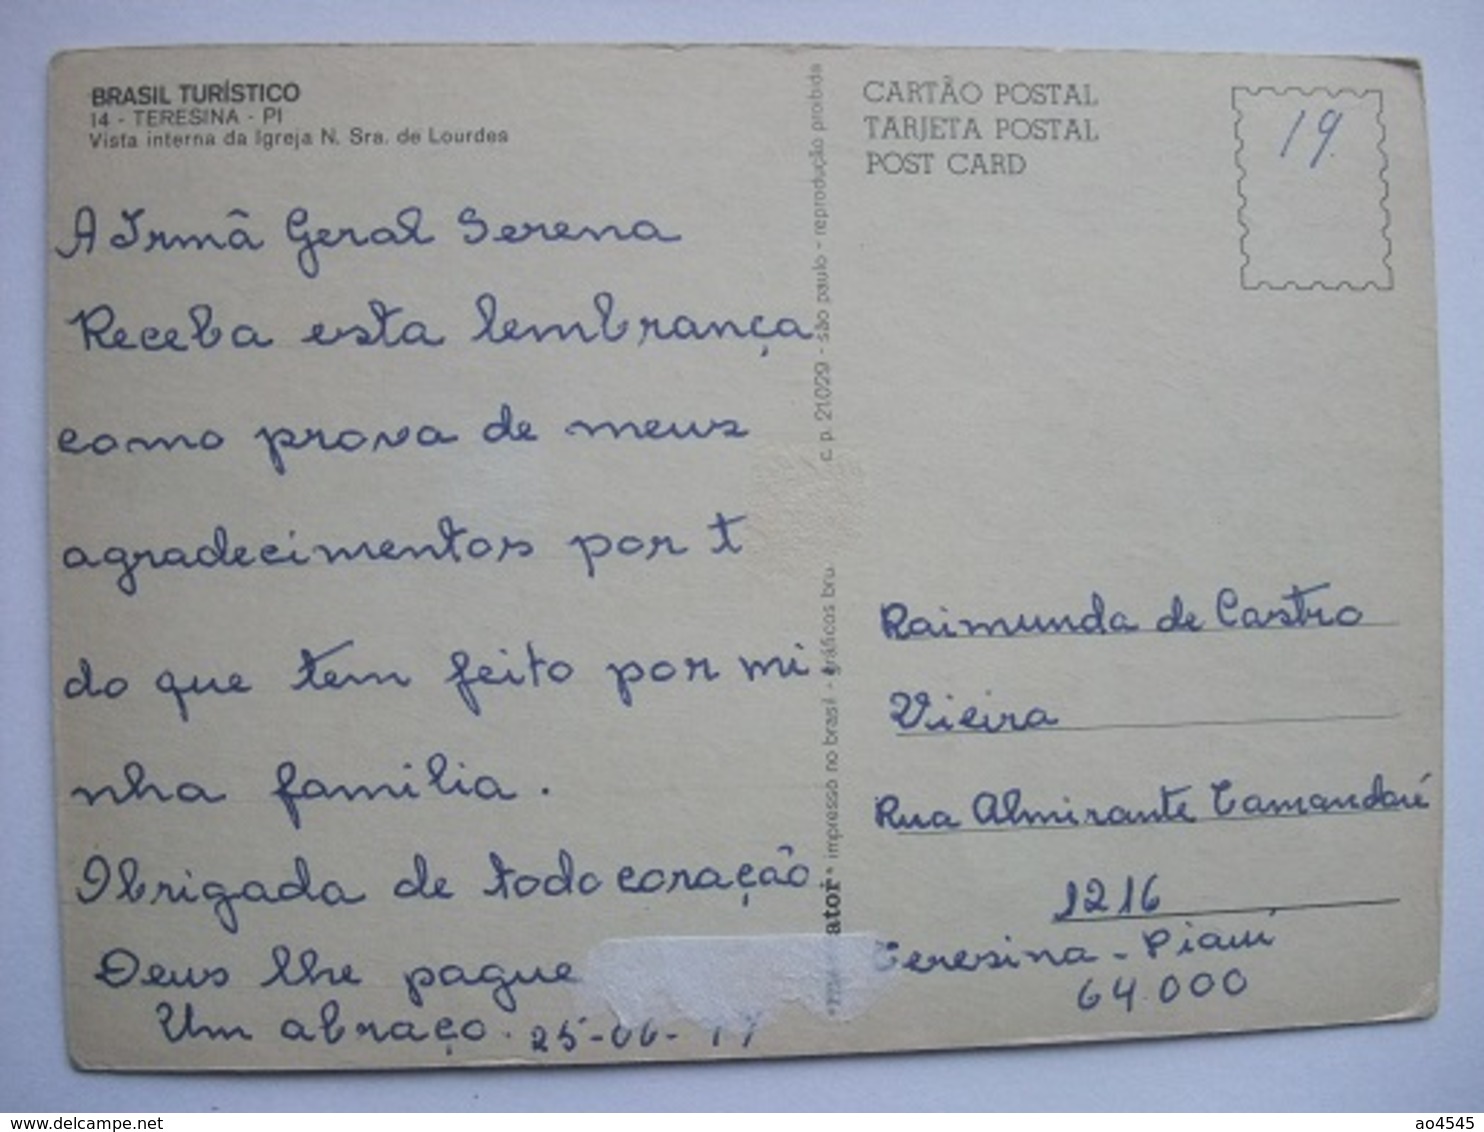 BRASIL TURÍSTICO
14 - TERESINA - PI
Vista interna da Igreja N. Sra. de Lourdes
A Irmã Geral Serena
Receba esta lembrança
como prova de meus
agradecimentos por t
do que tem feito por mi
nha família.
Obrigada de todo coração
Deus lhe pague
Um abraço. 25-06-
ator impresso no brasil - gráficos bru. c. p. 21029 - são paulo - reprodução proibida
CARTÃO POSTAL
TARJETA POSTAL
POST CARD
19.
Raimunda de Castro
Vieira
Rua Almirante Tamandaré
1216
Teresina - Piauí
64.000
www.delcampe.net
ao4545